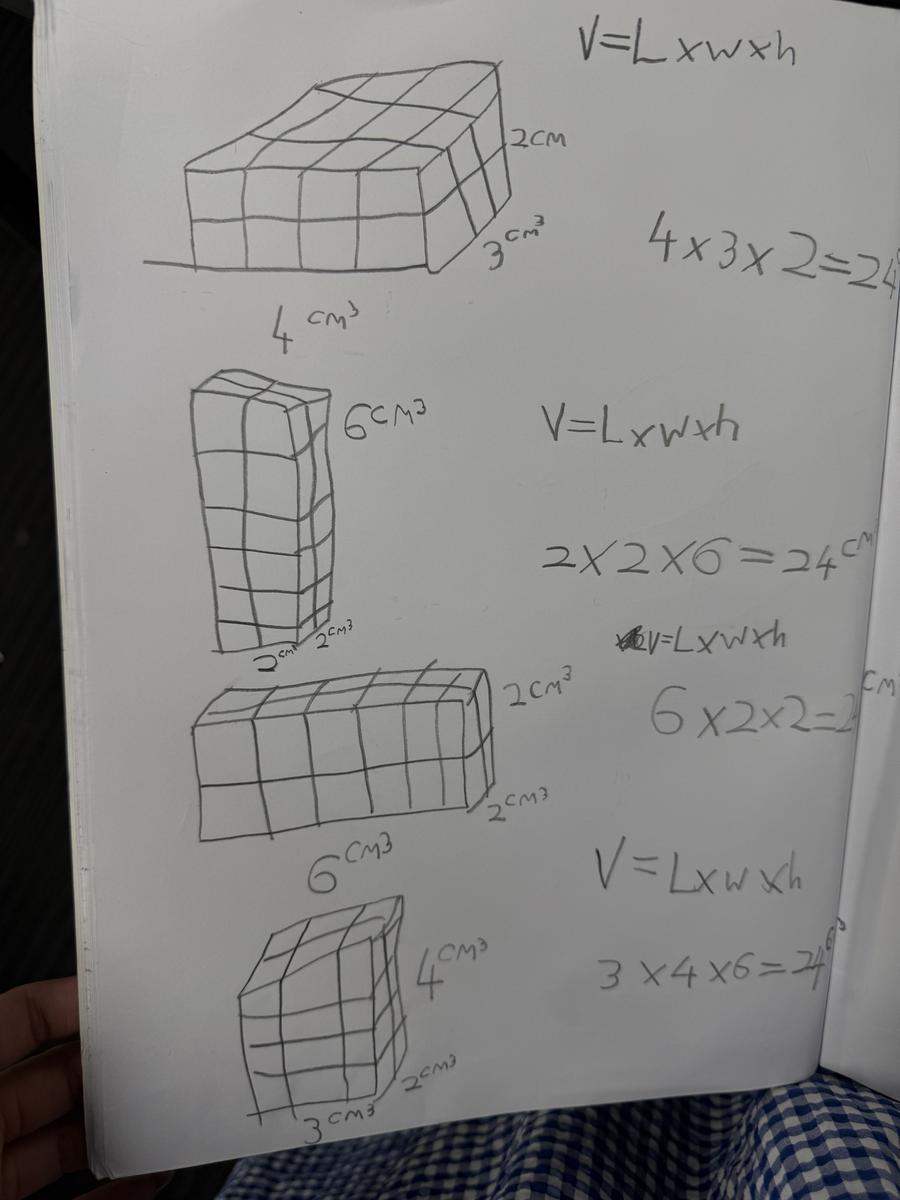 V=Lxwxh
2cm
3cm³
4x3x2=24
4cm³
6cm³
V=Lxwxh
2x2x6=24cm
2cm³
2cm³
V=Lxwxh
2cm³
6x2x2=2 cm
2cm³
6cm³
V=Lxwxh
4cm³
3x4x6=24
2cm³
3cm³